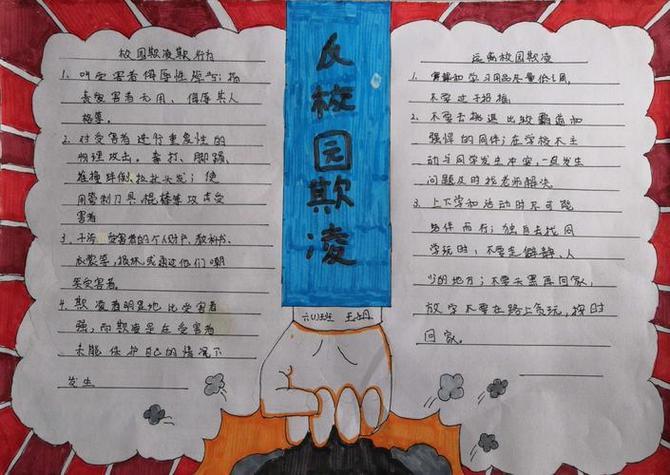 校园欺凌欺行为
1. 叫受害者侮辱性绰号；指
责受害者无用、侮辱其人
格等。
2. 对受害者进行重复性的
物理攻击。拳打、脚踢、
推撞绊倒、拉扯头发；使
用管制刀具、棍棒等攻击受
害者
3. 干涉受害者的个人财产、教科书、
衣裳等，损坏或通过他们嘲
笑受害者。
4. 欺凌者明显地比受害者
强，而欺凌是在受害者
未能保护自己的情况下
发生
反校园欺凌
六(1)班
远离校园欺凌
1. 穿戴和学习用品尽量低调，
不要过于招摇。
2. 不要去挑逗比较霸道和
强悍的同伴；在学校不主
动与同学发生冲突，一旦发生
问题及时找老师解决。
3. 上下学和活动时尽可能
结伴而行；独自去找同
学玩时，不要走僻静、人
少的地方；不要天黑再回家，
放学不要在路上贪玩，按时
回家。